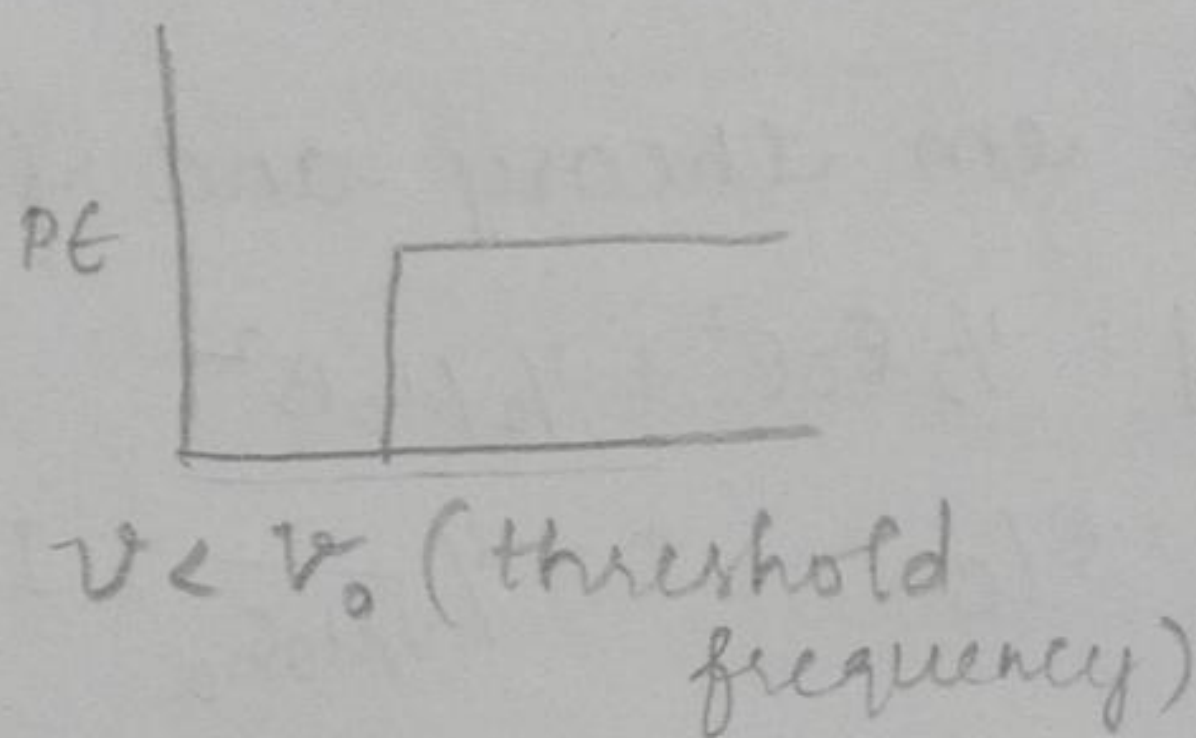 PE
ν < ν₀ (threshold
frequency)